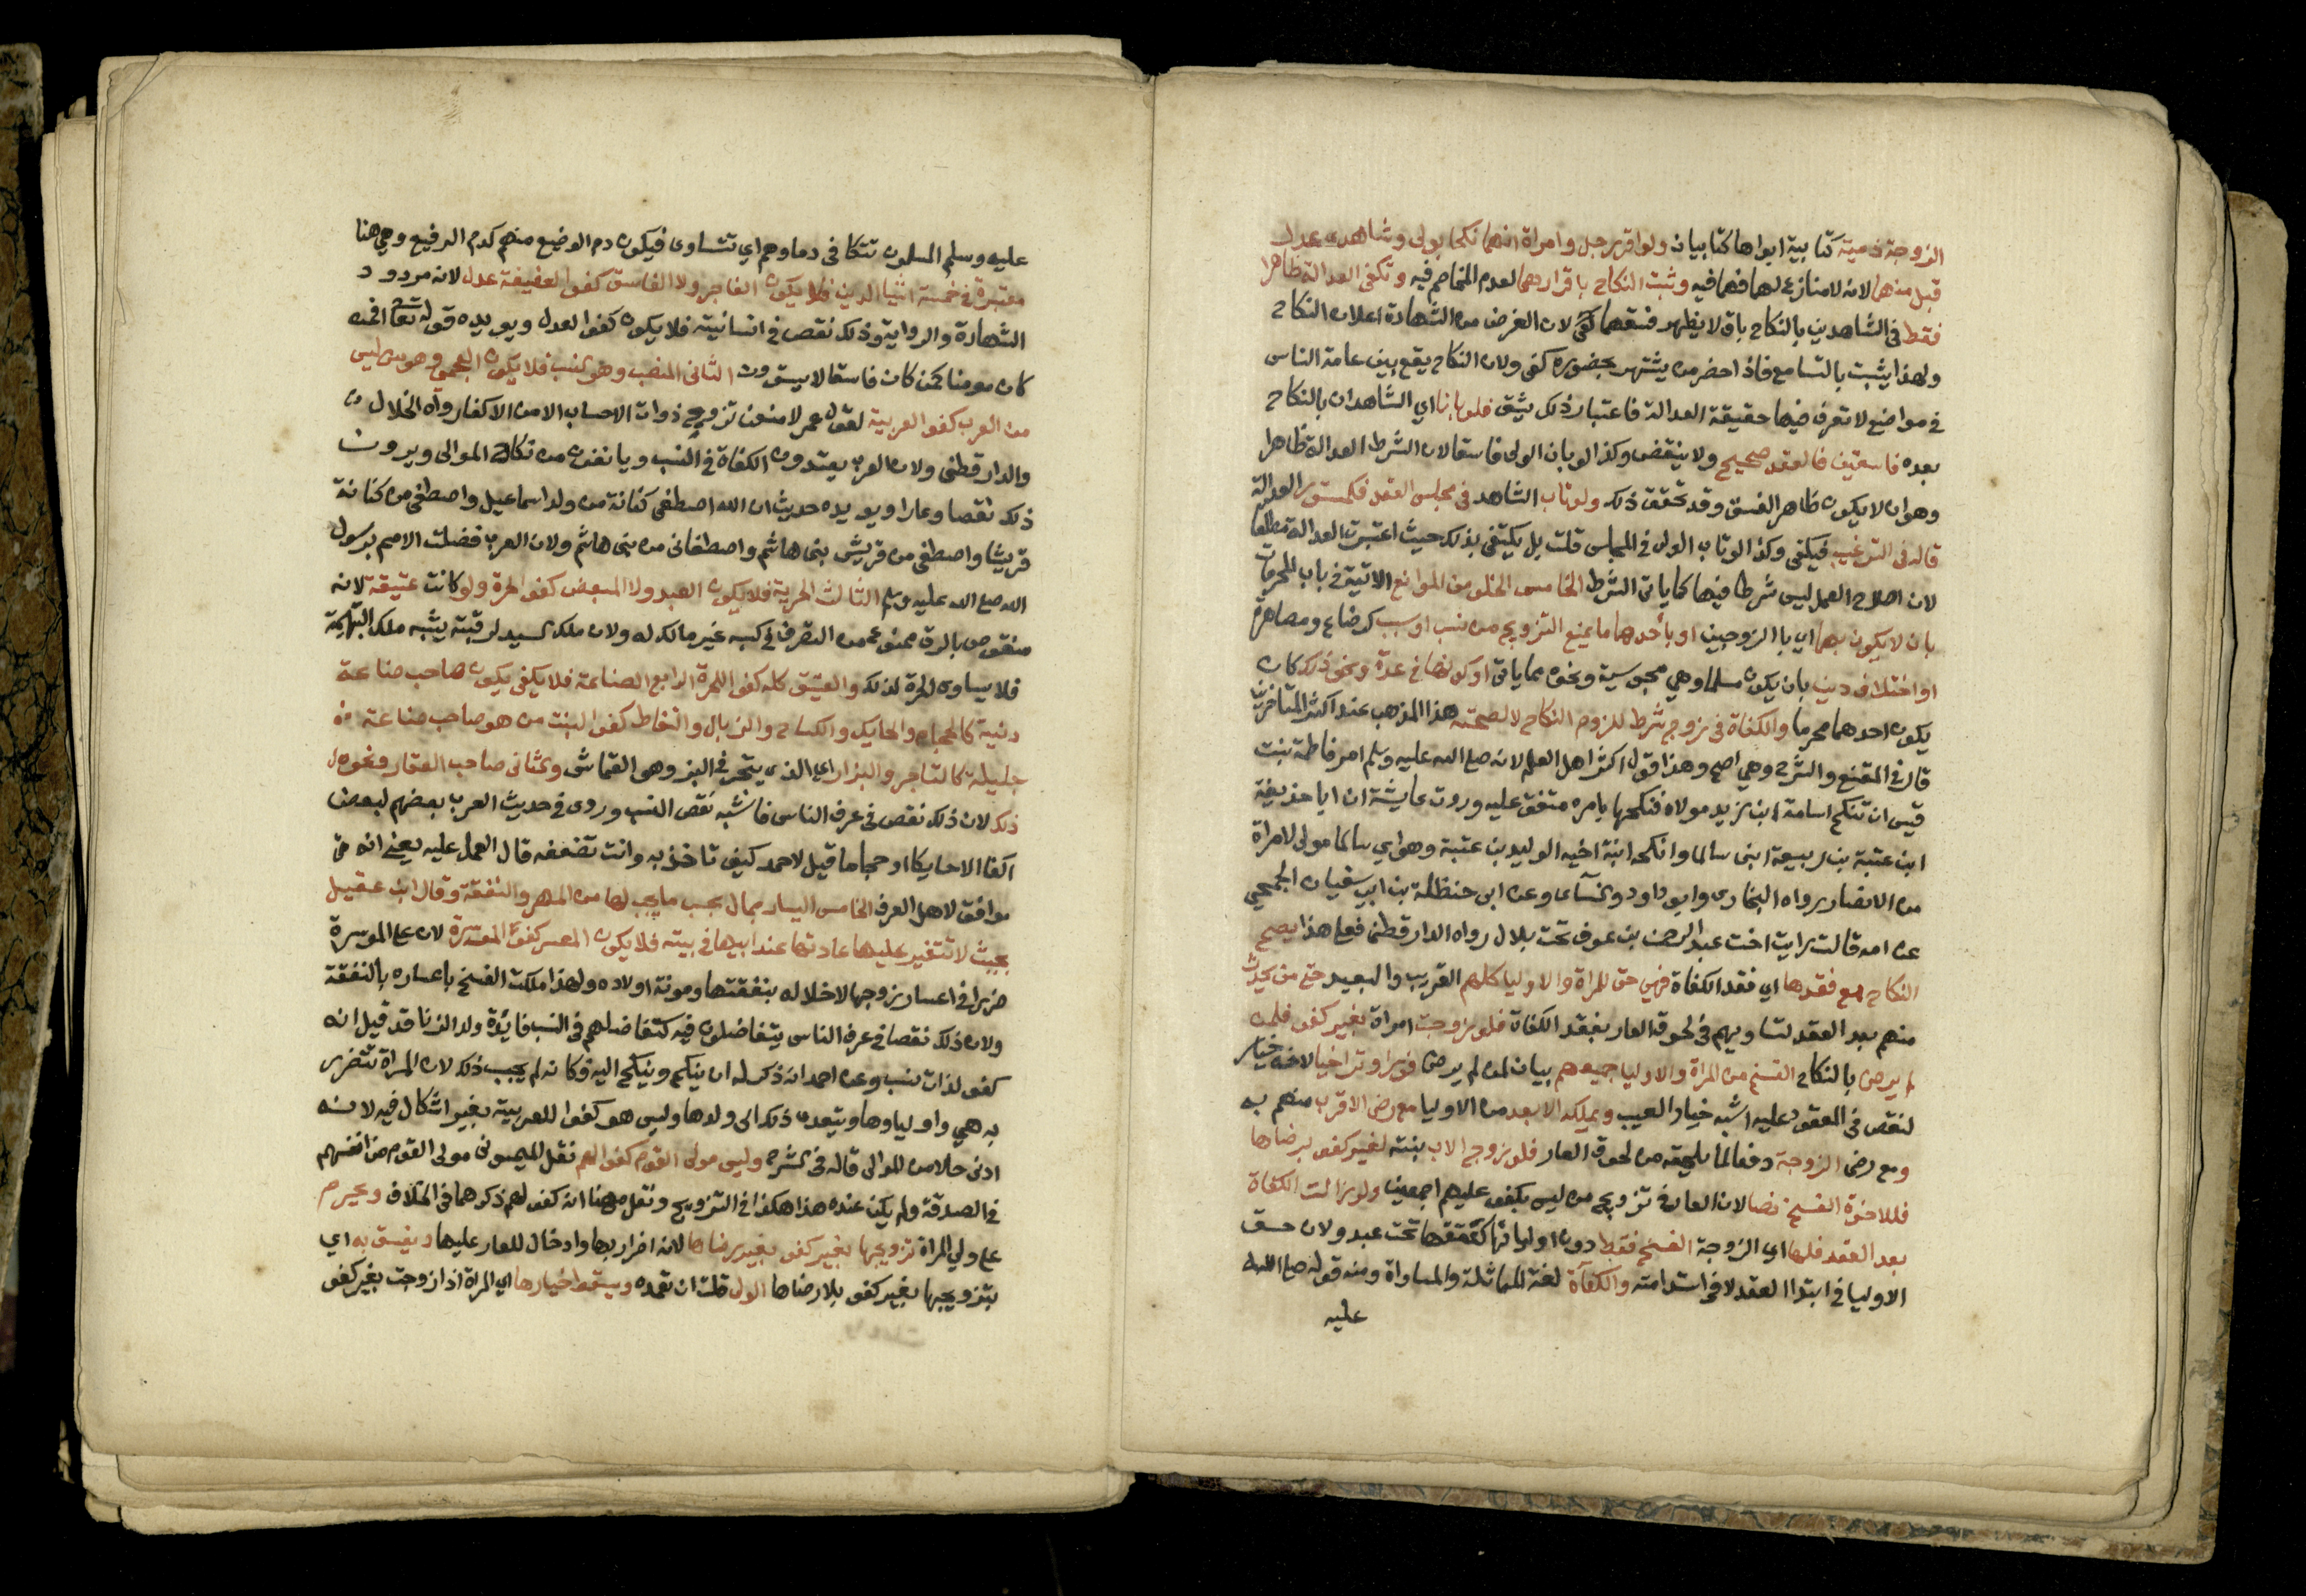 الزوجة ذمية كتابية ابواها كتابيان ولو اقر رجل وامراة انهما نكحا بولي وشاهدي عدل
قبل منهما لانه لا منازع لهما فيه وثبت النكاح باقرارهما لعدم المخاصم فيه وتكفي العدالة ظاهرا
فقط في الشاهدين بالنكاح بان لا يظهر فسقهما لان الغرض من الشهادة اعلان النكاح
ولهذا يثبت بالتسامع فاذا حضر من يشتهر بحضوره كفى ولان النكاح يقع بين عامة الناس
في مواضع لا تعرف فيها حقيقة العدالة فاعتبار ذلك يشق فلو بانا اي الشاهدان بالنكاح
بعده فاسقين فالعقد صحيح ولا ينقض وكذا لو بان الولي فاسقا لان الشرط العدالة ظاهرا
وهو ان لا يكون ظاهر الفسق وقد تحقق ذلك ولو تاب الشاهد في مجلس العقد فكمستور العدالة
قاله في الترغيب فيكفي وكذا لو تاب الولي في المجلس قلت بل يكتفى بذلك حيث اعتبرت العدالة مطلقا
لان اصلاح العمل ليس شرطا فيها كما ياتي الشرط الخامس الخلو من الموانع الاتية في باب المحرمات
بان لا يكون بهما اي بالزوجين او باحدهما ما يمنع التزويج من نسب او سبب كرضاع ومصاهرة
او اختلاف دين بان يكون مسلما وهي مجوسية ونحوه مما ياتي او كونها في عدة ونحو ذلك كان
يكون احدهما محرما والكفاة في زوج شرط للزوم النكاح لا لصحته هذا المذهب عند اكثر المتاخرين
قال في المقنع والشرح وهي اصح وهذا قول اكثر اهل العلم لانه صلى الله عليه وسلم امر فاطمة بنت
قيس ان تنكح اسامة ابن زيد مولاه فنكحها بامره متفق عليه وروت عايشة ان ابا حذيفة
ابن عتبة بن ربيعة تبنى سالما وانكحه ابنة اخيه الوليد بن عتبة وهو اي سالما مولى لامراة
من الانصار رواه البخاري وابو داود والنسآى وعن ابي حنظلة بن ابي سفيان الجمحي
عن امه قالت رايت اخت عبد الرحمن بن عوف تحت بلال رواه الدارقطني فعلى هذا يصح
النكاح مع فقدها اي فقد الكفاة فهي حق للمراة والاوليا كلهم القريب والبعيد حتى من يحدث
منهم بعد العقد لتساويهم في لحوق العار بفقد الكفاة فلو زوجت امراة بغير كفو فلمن
لم يرض بالنكاح الفسخ من المراة والاوليا جميعهم بيان لمن لم يرض فورا وتراخيا لانه خيار
لنقص في المعقود عليه اشبه خيار العيب ويملكه الابعد من الاوليا مع رضى الاقرب منهم به
ومع رضى الزوجة دفعا لما يلحقه من لحوق العار فلو زوج الاب بنته لغير كفو برضاها
فللاخوة الفسخ نصا لان العار في تزويج من ليس بكفو عليهم اجمعين ولو زالت الكفاة
بعد العقد فلها اي الزوجة الفسخ فقط دون اوليائها كعتقها تحت عبد ولان حق
الاوليا في ابتدا العقد لا في استدامته والكفآة لغة المماثلة والمساواة ومنه قوله صلى الله
عليه
عليه وسلم المسلمون تتكافى دماوهم اي تتساوى فيكون دم الوضيع منهم كدم الرفيع وهي هنا
معتبرة في خمسة اشيا الدين فلا يكون الفاجر ولا الفاسق كفوا لعفيفة عدل لانه مردود
الشهادة والرواية وذلك نقص في انسانيته فلا يكون كفوا لعدل ويويده قوله تعالى افمن
كان مومنا كمن كان فاسقا لا يستوون الثاني المنصب وهو النسب فلا يكون العجمي وهو من ليس
من العرب كفوا لعربية لقول عمر لامنعن تزويج ذوات الاحساب الا من الاكفا رواه الخلال
والدارقطني ولان العرب يعتدون الكفاة في النسب ويانفون من نكاح الموالي ويرون
ذلك نقصا وعارا ويويده حديث ان الله اصطفى كنانة من ولد اسماعيل واصطفى من كنانة
قريشا واصطفى من قريش بني هاشم واصطفاني من بني هاشم ولان العرب فضلت الامم برسول
الله صلى الله عليه وسلم الثالث الحرية فلا يكون العبد ولا المبعض كفوا لحرة ولو كانت عتيقة لانه
منقوص بالرق ممنوع من التصرف في كسبه غير مالك له ولان ملك السيد لرقبته يشبه ملك البهيمة
فلا يساوي الحرة لذلك والعتيق كله كفوا للحرة الرابع الصناعة فلا يكفي يكون صاحب صناعة
دنية كالحجام والحايك والكساح والزبال والنفاط كفوا لبنت من هو صاحب صناعة
جليلة كالتاجر والبزار اي الذي يتجر في البز وهو القماش والثاني صاحب العقار ونحو
ذلك لان ذلك نقص في عرف الناس فاشبه نقص النسب وروي في حديث العرب بعضهم لبعض
اكفا الا حايكا او حجاما قيل لاحمد كيف تاخذ به وانت تضعفه قال العمل عليه يعني انه
موافق لاهل العرف الخامس اليسار بمال بحسب ما يجب لها من المهر والنفقة وقال ابن عقيل
بحيث لا تتغير عليها عادتها عند ابيها في بيته فلا يكون المعسر كفوا لموسرة لان على الموسرة
ضررا في اعسار زوجها لاخلاله بنفقتها ومونة اولاده ولهذا ملكت الفسخ باعساره بالنفقة
ولان ذلك نقصا في عرف الناس يتفاضلون فيه كتفاضلهم في النسب فايدة ولد الزنا قد قيل انه
كفو لذات نسب وعن احمد انه ذكر له ان ينكح وينكح اليه فكانه لم يحب ذلك لان المراة تتضرر
به هي واولياوها ويتعدى ذلك الى ولدها وليس هو كفوا للعربية بغير اشكال فيه لانه
ادنى حالا من الموالي قاله في الشرح وليس مولى القوم كفوا لهم نقل الميموني مولى القوم من انفسهم
في الصدقة ولم يكن عنده هذا هكذا في التزويج ونقل مهنا انه كفو لهم ذكرهما في الخلاف ويحرم
على ولي المراة تزويجها بغير كفو بغير رضاها لانه اضرار بها وادخال للعار عليها ويفسق به اي
بتزويجها بغير كفو بلا رضاها الولي قلت ان تعمده ويسقط خيارها اي المراة اذا زوجت بغير كفو